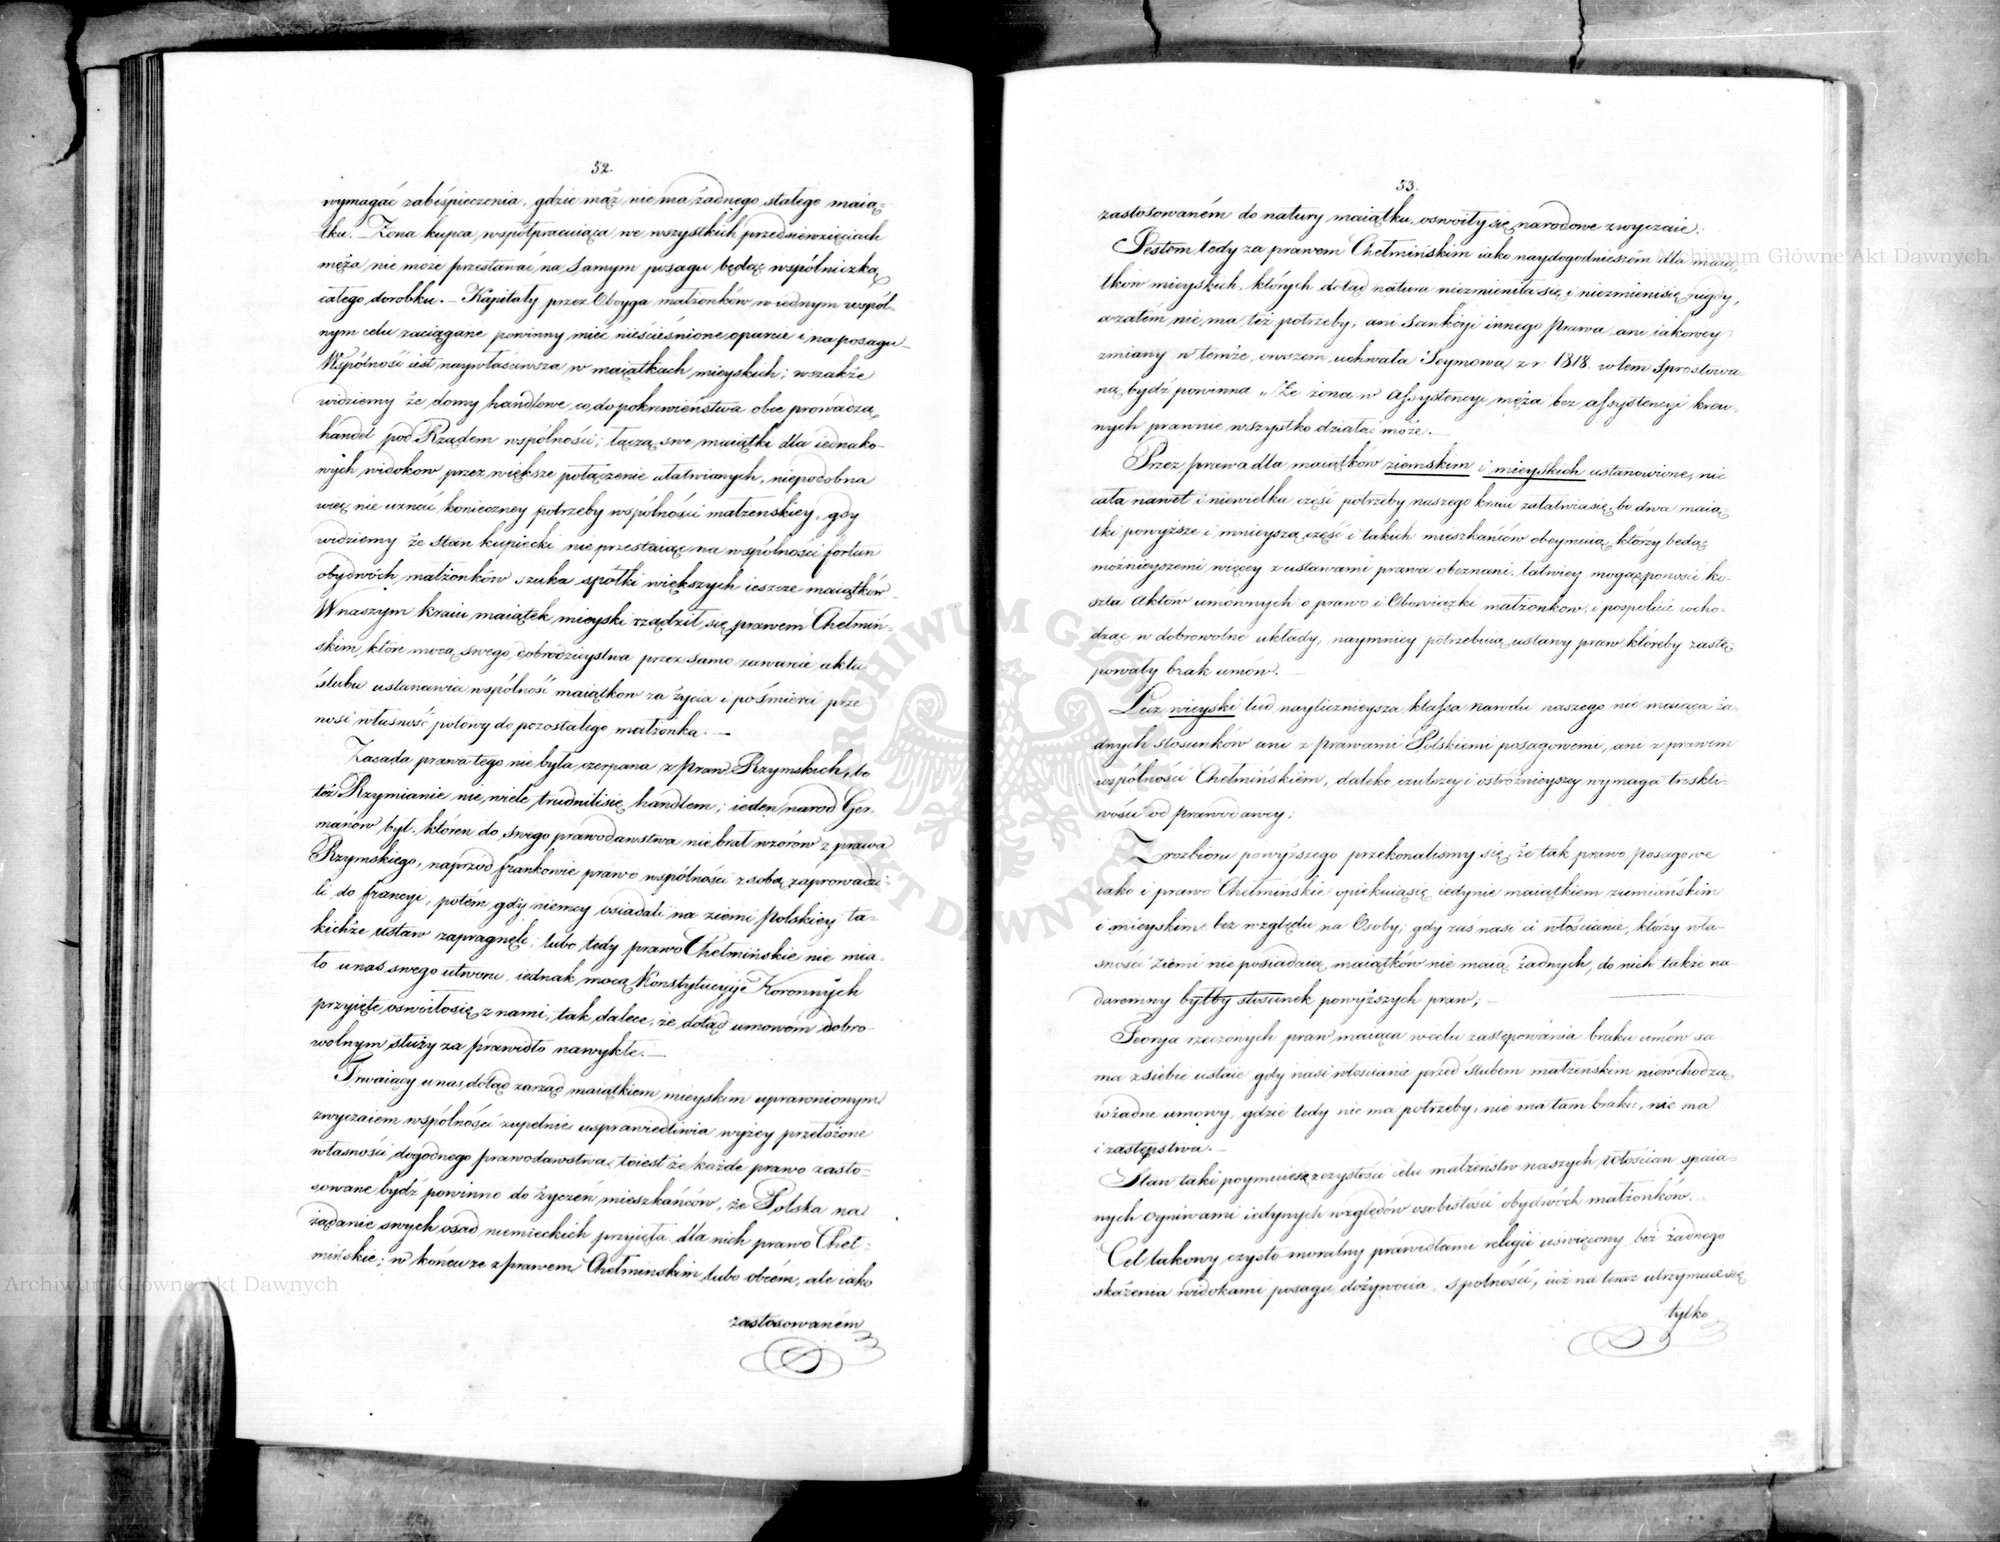 52.
wymagać zabéspieczenia, gdzie mąż nie ma żadnego stałego maią-
tku. – Żona kupca współpracuiąca we wszystkich przedsiewzięciach
męża nie może przestawać na samym posagu będąc wspólniczką
całego dorobku. – Kapitały przez Oboyga małżonków w iednym wspól-
nym celu zaciągane powinny mieć nieścieśnione oparcie i na posagu –
Wspólność iest naywłaściwsza w maiątkach mieyskich; wszakże
widziemy że domy handlowe, co do pokrewieństwa obce prowadzą
handel pod Rządem wspólności; łączą swe maiątki dla iednako-
wych widokow przez większe połączenie ułatwianych, niepodobna
więc nie uznać konieczney potrzeby wspólności małżeńskiey, gdy
widziemy że stan kupiecki nie przestaiąc na wspólności fortun
obydwóch małżonków szuka spółki większych ieszcze maiątków –
W naszym kraiu maiątek mieyski rządził się prawem Chełmiń-
skim, które mocą swego dobrodzieystwa przez samo zawarcie aktu
ślubu ustanawia wspólność maiątkow za życia i po śmierci prze
nosi własność połowy do pozostałego małżonka. –
Zasada prawa tego nie była czerpana z praw Rzymskich, bo
też Rzymianie nie wiele trudnili się handlem; ieden narod Ger-
manów był, któren do swego prawodawstwa nie brał wzorów z prawa
Rzymskiego, naprzód frankowie prawo wspólności z sobą zaprowadzi-
li do francyi, potém gdy niemcy osiadali na ziemi Polskiey ta-
kichże ustaw zapragnęli; lubo tedy prawo Chełmińskie nie mia-
ło u nas swego utworu, iednak mocą Konstytucyi Koronnych
przyięte oswoiło się z nami, tak dalece, że dotąd umowom dobro-
wolnym służy za prawidło nawykłe. –
Trwaiący u nas dotąd zarząd maiątkiem mieyskim uprawnionym
zwyczaiem wspólności zupełnie usprawiedliwia wyżey przełożone
własności dogodnego prawodawstwa, toiest że każde prawo zasto-
sowane bydź powinno do życzeń mieszkańców, że Polska na
żądanie swych osad niemieckich przyięła dla nich prawo Cheł-
mińskie; w końcu ze z prawem Chełminskim lubo obcém, ale iako
zastosowaném
53.
zastosowaném do natury maiątku, oswoiły się narodowe zwyczaie.
Jestem tedy za prawem Chełmińskim iako naydogodnieszém dla maią
tków mieyskich, których dotąd natura niezmieniła się i niezmieni się nigdy,
a zatem nie ma też potrzeby, ani sankcyi innego Prawa, ani iakowey
zmiany w temże, owszem uchwała Seymowa z r. 1818. w tem sprostowa
na bydź powinna „Że żona w assystencyi męża bez assystencyi krew-
nych prawnie wszystko działać może. –
Przez prawa dla maiątkow ziemskim i mieyskich ustanowione, nie
cała nawet i niewielka część potrzeby naszego kraiu załatwia się, bo dwa maią
tki powyższe i mnieyszą część i takich mieszkańców obeymuią, którzy będąc
możnieyszemi więcey z ustawami prawa obeznani, łatwiey mogąc ponosić ko-
szta Aktów umownych o prawo i Obowiązki małżonkow, i pospolicie wcho-
dząc w dobrowolne układy, naymniey potrzebuią ustawy praw któreby zastę
powały brak umów. –
Lecz wieyski lud nayliczniejsza klassa narodu naszego nie maiąca ża-
dnych stosunków ani z prawami Polskiemi posagowemi, ani z prawem
wspólności Chełmińskiém, daleko czulszey i ostróżnieyszey wymaga troskli-
wości od prawodawcy;
Z rozbioru powyższego przekonaliśmy się, że tak prawo posagowe
iako i prawo Chełmińskie opiekuią się iedynie maiątkiem ziemiańskim
i mieyskim, bez względu na Osoby; gdy zaś nasi ci włościanie, którzy wła-
sności ziemi nie posiadaią, maiątków nie maią żadnych, do nich także na-
daremny byłby stosunek powyższych praw; –
Teorya rzeczonych praw maiąca w celu zastępowania braku umów sa-
ma z siebie ustaie gdy nasi włościanie przed ślubem małżeńskim niewchodzą
w żadne umowy, gdzie tedy nie ma potrzeby, nie ma tam braku, nie ma
i zastępstwa. –
Stan taki poymuiesz z czystości celu małżeństw naszych Włościan spaia-
nych ogniwami iedynych względów osobistości obydwóch małżonków. –
Cel takowy czysto moralny prawidłami religii uświęcony, bez żadnego
skażenia widokami posagu, dożywocia, spolności, iuż na teraz utrzymuie się
tylko
Archiwum Główne Akt Dawnych
Archiwum Główne Akt Dawnych
ARCHIWUM GŁÓWNE AKT DAWNYCH